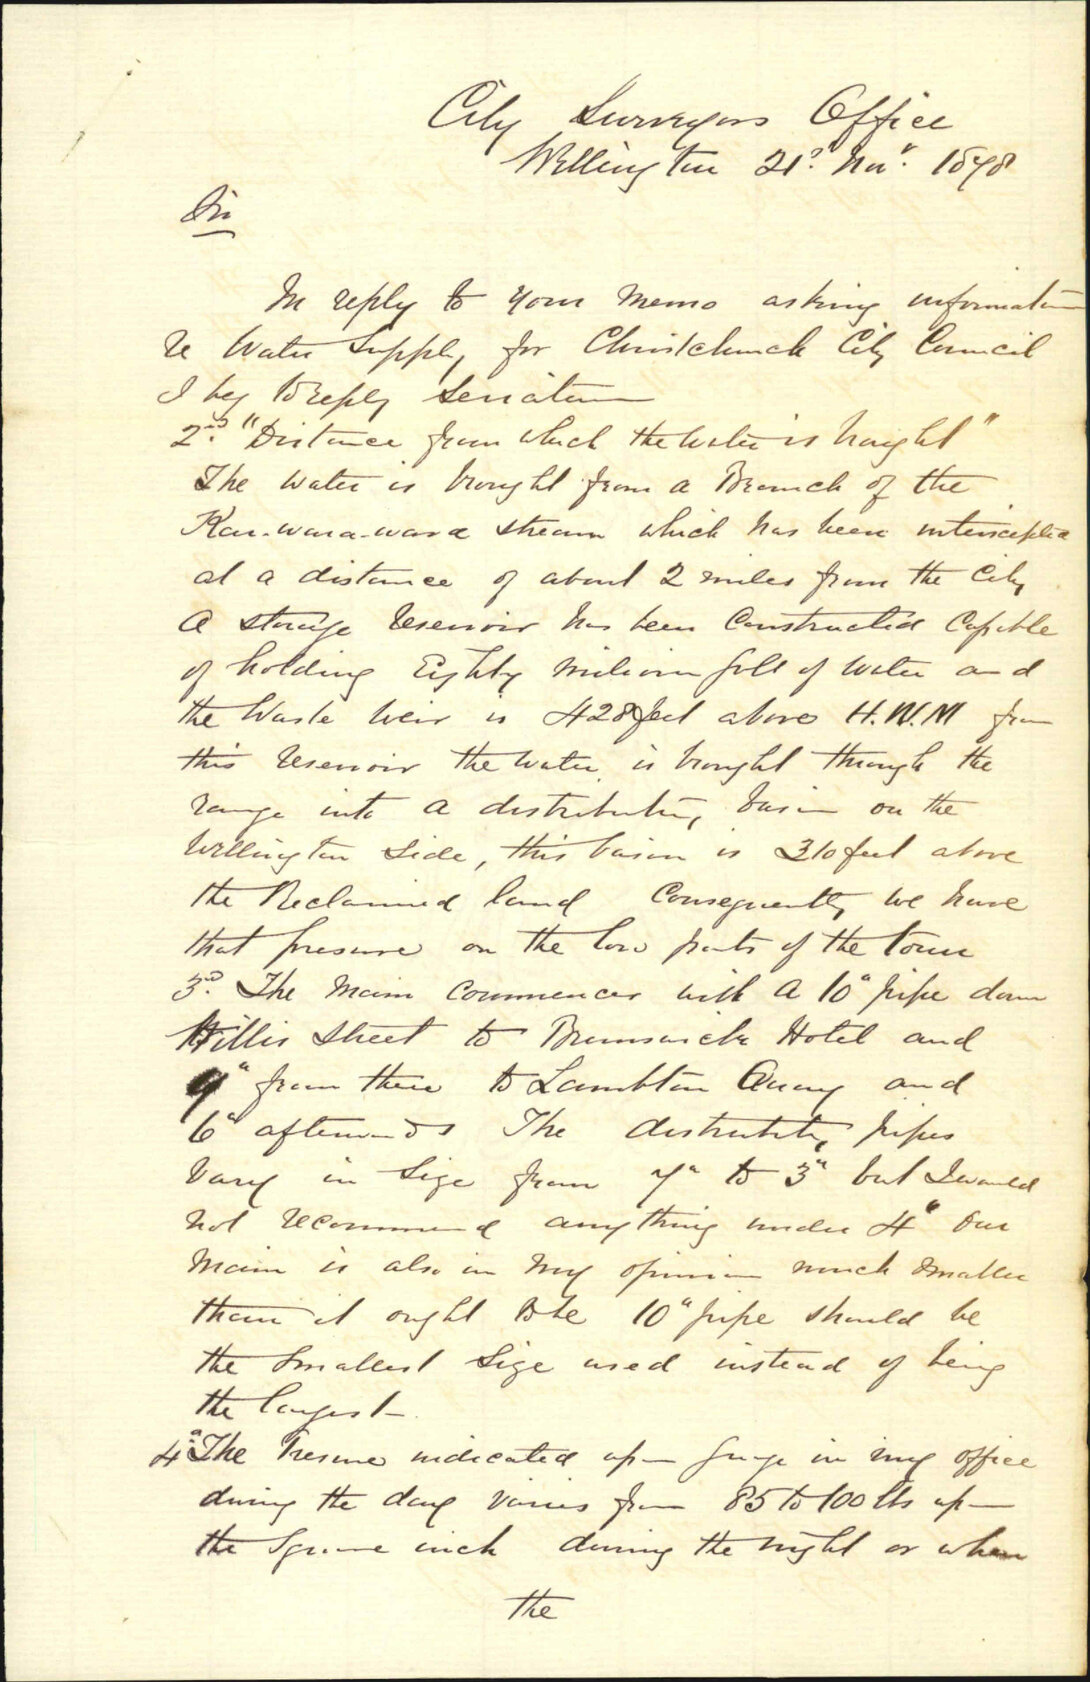 City Surveyors Office
Wellington 21st Nov. 1878
Sir
In reply to your memo asking information
re Water Supply for Christchurch City Council
I beg to reply seriatim
2nd "Distance from which the water is brought"
The water is brought from a Branch of the
Kai-wara-wara stream which has been intercepted
at a distance of about 2 miles from the City
A storage reservoir has been constructed capable
of holding Eighty million gall of water and
the waste weir is 428 feet above H.W.M from
this reservoir the water is brought through the
range into a distributing basin on the
Wellington side, this basin is 310 feet above
the Reclaimed land Consequently we have
that pressure on the low parts of the town
3rd. The main commences with a 10" pipe down
Willis Street to Brunswick Hotel and
9" from there to Lambton Quay and
6" afterwards The distributing pipes
vary in size from 7" to 3" but I would
not recommend anything under 4" Our
main is also in my opinion much smaller
than it ought to be 10" pipe should be
the smallest size used instead of being
the largest
4th The Pressure indicated upon guage in my office
during the day varies from 85 to 100 lbs upon
the square inch during the night or when
the